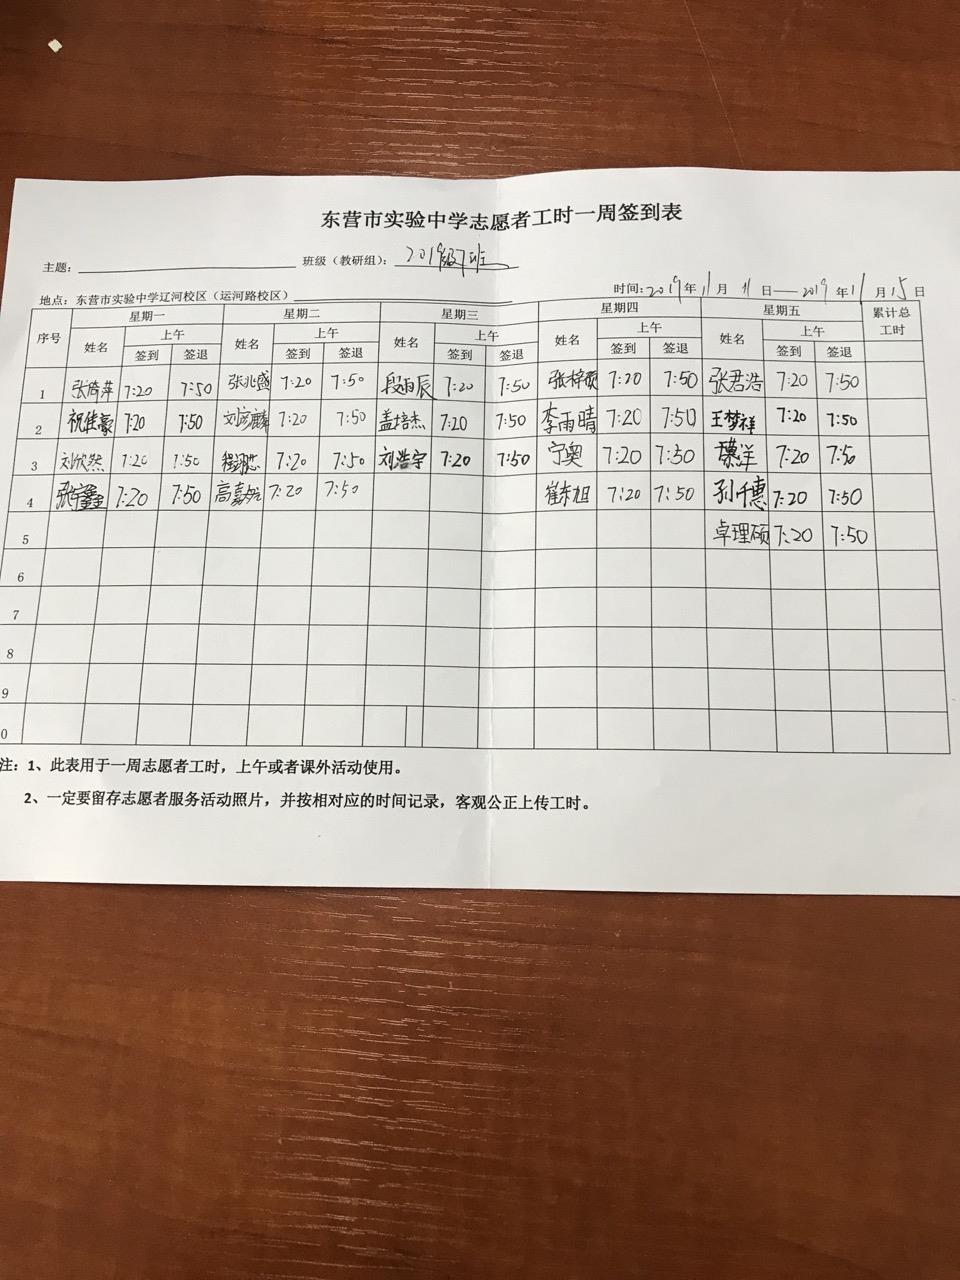 东营市实验中学志愿者工时一周签到表
主题： 班级（教研组）：2019级7班
地点：东营市实验中学辽河校区（运河路校区） 时间：2019年11月11日——2019年11月15日
序号 星期一 星期二 星期三 星期四 星期五 累计总工时
姓名 上午 姓名 上午 姓名 上午 姓名 上午 姓名 上午
签到 签退 签到 签退 签到 签退 签到 签退 签到 签退
1 张倚萍 7:20 7:50 张兆盛 7:20 7:50 段雨辰 7:20 7:50 张梓硕 7:20 7:50 张君浩 7:20 7:50
2 祝佳豪 7:20 7:50 刘彦麟 7:20 7:50 盖培杰 7:20 7:50 李雨晴 7:20 7:50 王梦祥 7:20 7:50
3 刘欣然 7:20 7:50 7:20 7:50 刘浩宇 7:20 7:50 宁奥 7:20 7:50 7:20 7:50
4 张宇鑫 7:20 7:50 7:20 7:50 崔东旭 7:20 7:50 孙千惠 7:20 7:50
5 卓理硕 7:20 7:50
6
7
8
9
0
注：1、此表用于一周志愿者工时，上午或者课外活动使用。
2、一定要留存志愿者服务活动照片，并按相对应的时间记录，客观公正上传工时。